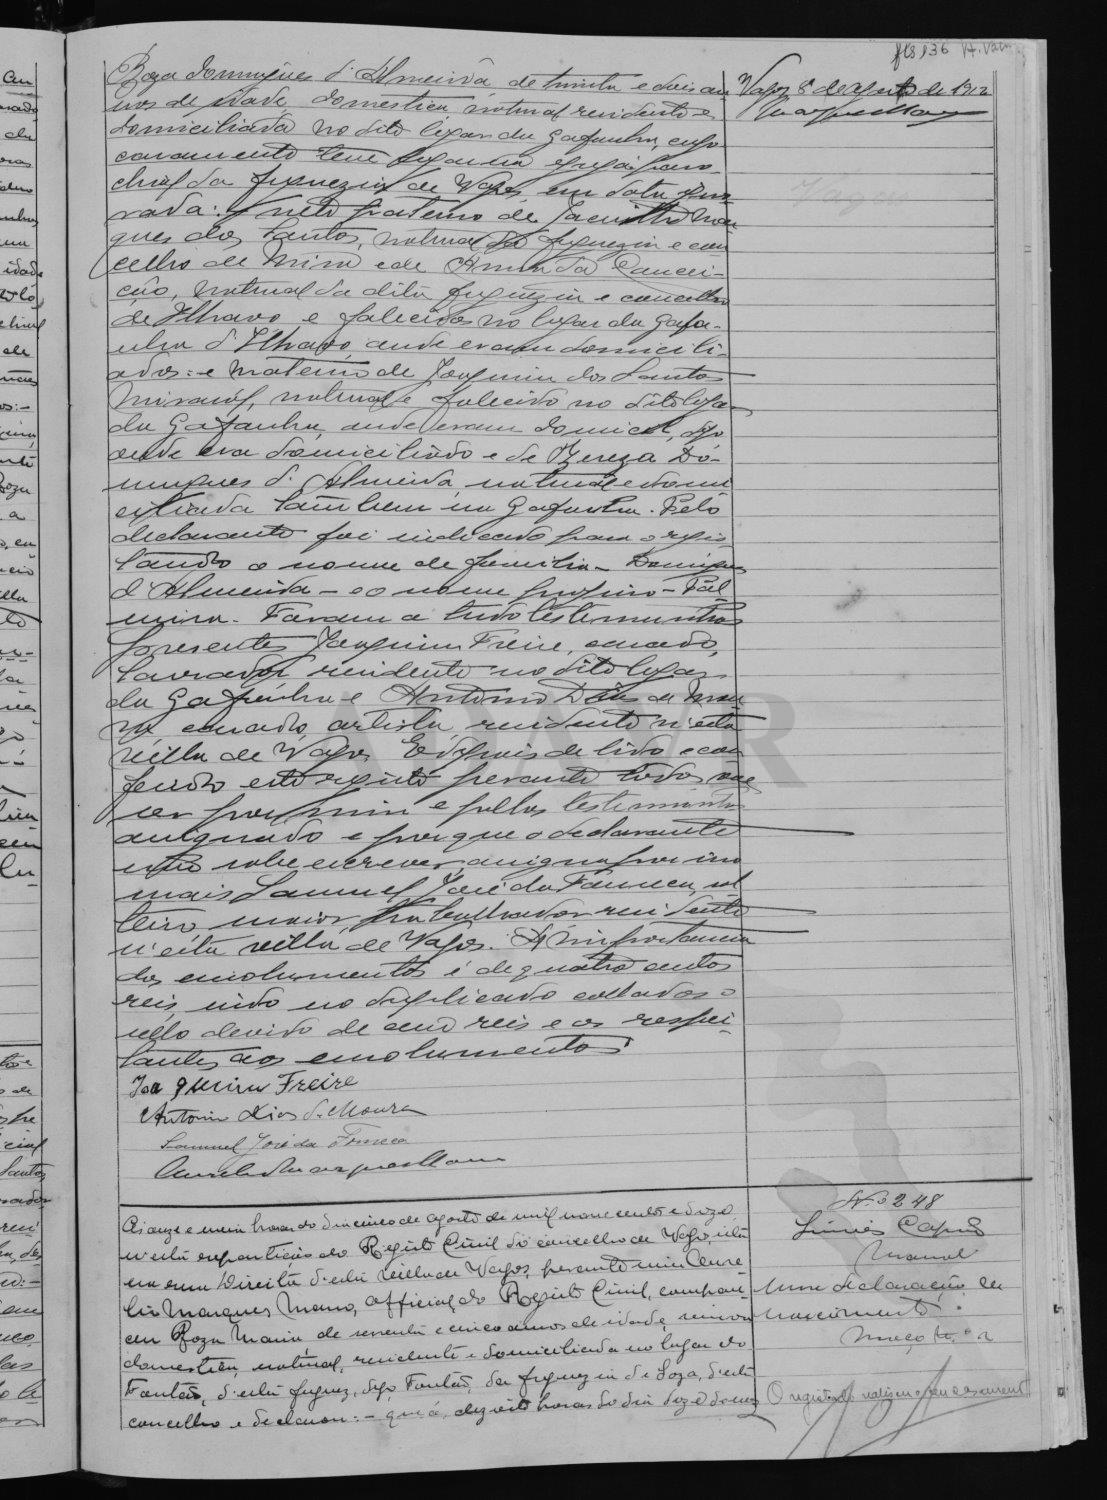 fls 136
Roza Domingues d'Almeida de trinta e dois an-
nos de idade, domestica, natural residente e
domiciliada no dito lugar da Gafanha, cujo
casamento teve lugar na egreja paro-
chial da freguezia de Vagos em data igno-
rada: neto paterno de Jacintho Mar-
ques dos Santos, natural da freguezia e con-
celho de Mira e de Anna da Concei-
ção, natural da dita freguezia e concelho
de Ilhavo e falecidos no lugar da Gafa-
nha d'Ilhavo, onde eram domicili-
ados: e materno de Joaquim dos Santos
natural e falecido no dito lugar
da Gafanha, onde eram domicil, digo
onde era domiciliado e de Thereza Do-
mingues d'Almeida, natural e domi-
ciliada tambem na Gafanha. Pelo
declarante foi indicado para o regis-
tando o nome de familia - Domingues
d'Almeida - e o nome proprio - Pal-
mira. Foram a tudo testemunhas
presentes Joaquim Freire, casado,
lavrador, residente no dito lugar
da Gafanha e Antonio Dias de Mou-
ra, casado, artista, residente n'esta
villa de Vagos. E depois de lido e con-
ferido este registo perante todos vae
ser por mim e pellas testemunhas
assignado e porque o declarante
não sabe escrever, assigna por si
mais Samuel José da Fonseca, sol-
teiro, maior, trabalhador, residente
n'esta villa de Vagos. A importancia
dos emolumentos é de quatrocentos
reis, indo no duplicado collados o
sello devido de cem reis e os respei-
tantes aos emolumentos.
Joaquim Freire
Antonio Dias de Moura
Samuel José da Fonseca
Vagos 8 de agosto de 1912
Vagos
Ás onze e meia horas do dia cinco de agosto de mil novecentos e doze
n'esta repartição do Registo Civil do concelho de Vagos, sita
na rua Direita d'esta villa de Vagos, perante mim Aure-
lio Marques Mano, official do Registo Civil, compare-
ceu Roza Maria de sessenta e cinco annos de idade, viuva
domestica, natural, residente e domiciliada no lugar do
Fontão, d'esta freguez, digo Fontão, da freguezia de Soza, d'este
concelho e declarou: - que ás dezoito horas do dia doze do mez
N.º 248
Manuel
Uma declaração de
nascimento.